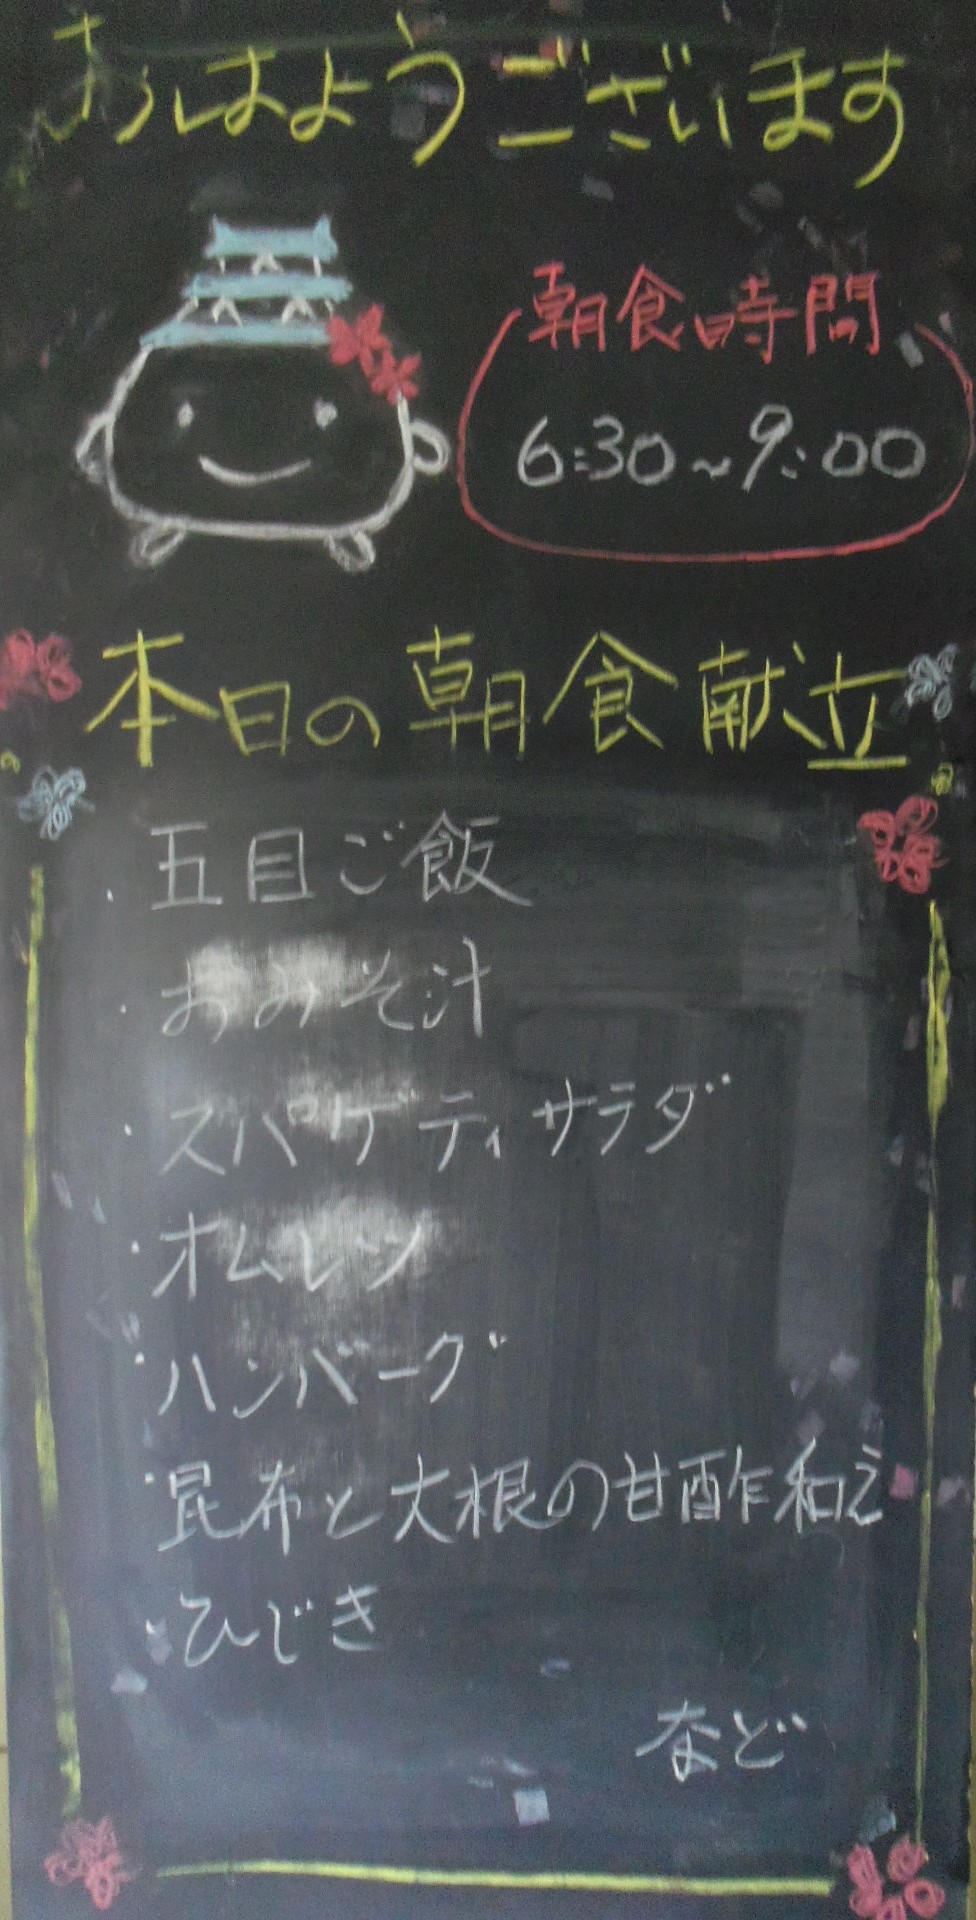 おはようございます
朝食時間
6:30~9:00
本日の朝食献立
・五目ご飯
・おみそ汁
・スパゲティサラダ
・オムレツ
・ハンバーグ
・昆布と大根の甘酢和え
・ひじき
など